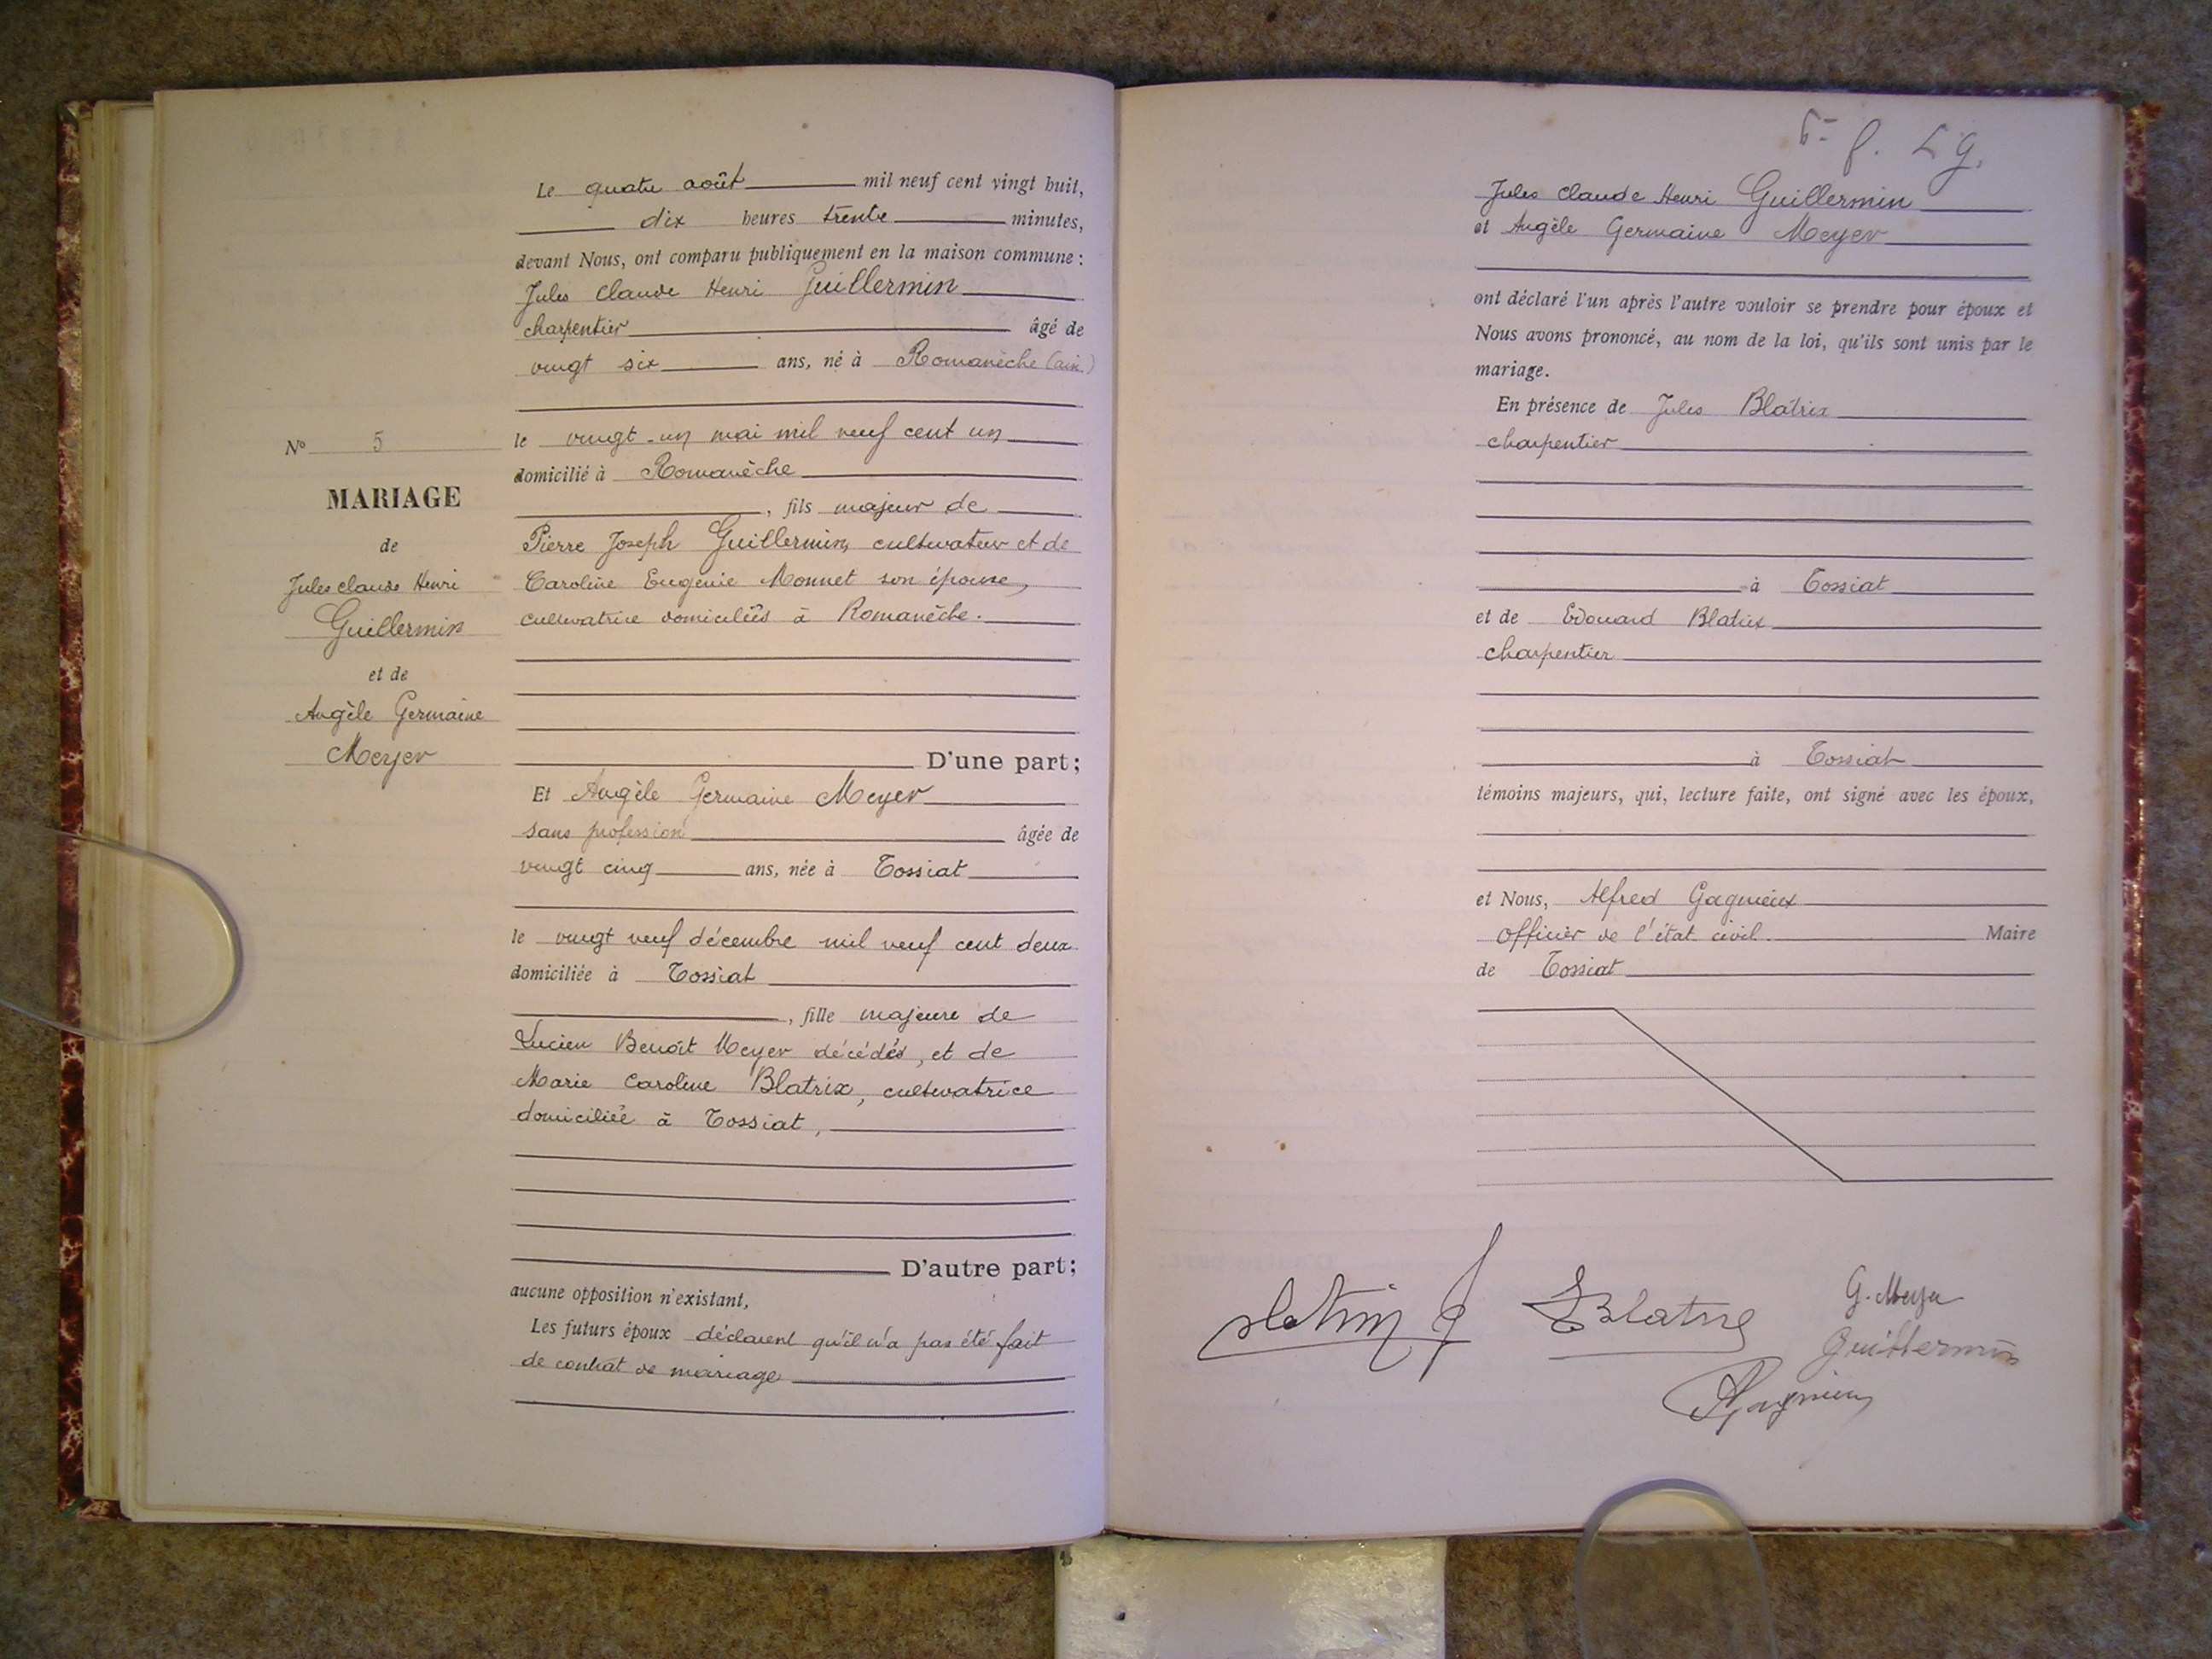 Le quatre août mil neuf cent vingt huit,
dix heures trente minutes,
devant Nous, ont comparu publiquement en la maison commune :
Jules Claude Henri Guillermin
charpentier âgé de
vingt six ans, né à Romanèche (ain)
le vingt-un mai mil neuf cent un
domicilié à Romanèche
, fils majeur de
Pierre Joseph Guillermin, cultivateur et de
Caroline Eugénie Monnet son épouse,
cultivatrice domiciliés à Romanèche.
D'une part;
Et Angèle Germaine Meyer
sans profession âgée de
vingt cinq ans, née à Tossiat
le vingt neuf décembre mil neuf cent deux
domiciliée à Tossiat
, fille majeure de
Lucien Benoît Meyer décédé, et de
Marie Caroline Blatrix, cultivatrice
domiciliée à Tossiat,
D'autre part;
aucune opposition n'existant,
Les futurs époux déclarent qu'il n'a pas été fait
de contrat de mariage
N° 5
MARIAGE
de
Jules Claude Henri
Guillermin
et de
Angèle Germaine
Meyer
Jules Claude Henri Guillermin
et Angèle Germaine Meyer
ont déclaré l'un après l'autre vouloir se prendre pour époux et
Nous avons prononcé, au nom de la loi, qu'ils sont unis par le
mariage.
En présence de Jules Blatrix
charpentier
à Tossiat
et de Edouard Blatrix
charpentier
à Tossiat
témoins majeurs, qui, lecture faite, ont signé avec les époux,
et Nous, Alfred Gagnieux
officier de l'état civil. Maire
de Tossiat
G. Meyer
Guillermin